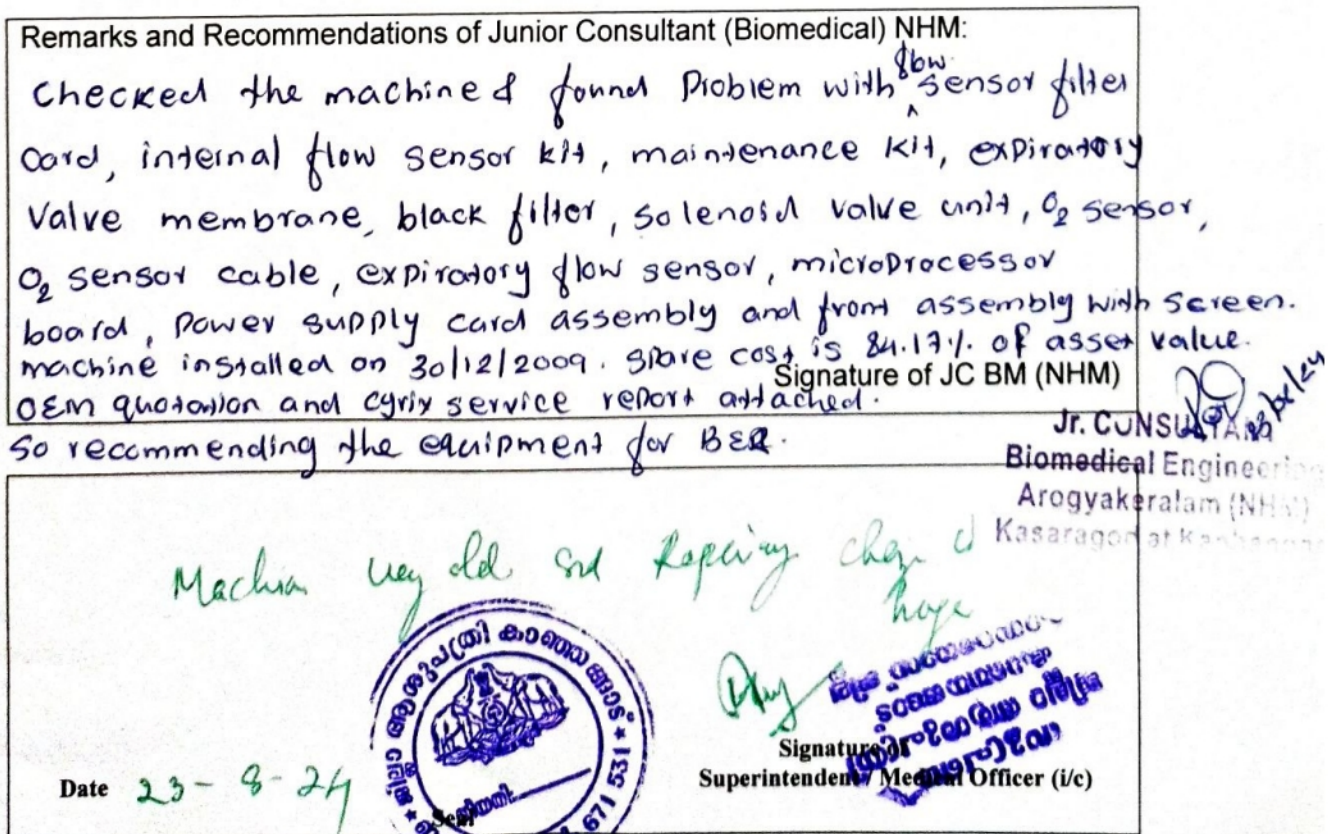 Remarks and Recommendations of Junior Consultant (Biomedical) NHM:
Checked the machine & found Problem with flow sensor filter
card, internal flow sensor kit, maintenance kit, expiratory
Valve membrane, black filter, solenoid valve unit, O₂ sensor,
O₂ sensor cable, expiratory flow sensor, microprocessor
board, Power supply card assembly and front assembly with screen.
machine installed on 30/12/2009. spare cost is 84.17% of asset value.
Signature of JC BM (NHM)
OEM quotation and cyrix service report attached.
So recommending the equipment for BER.
Jr. CONSULTANT
Biomedical Engineering
Arogyakeralam (NHM)
Kasaragod at
Machin very old and Repairing charge is
huge
ജില്ലാ ആശുപത്രി കാഞ്ഞങ്ങാട്
671 531
Seal
Signature of
Superintendent / Medical Officer (i/c)
Date 23-8-24